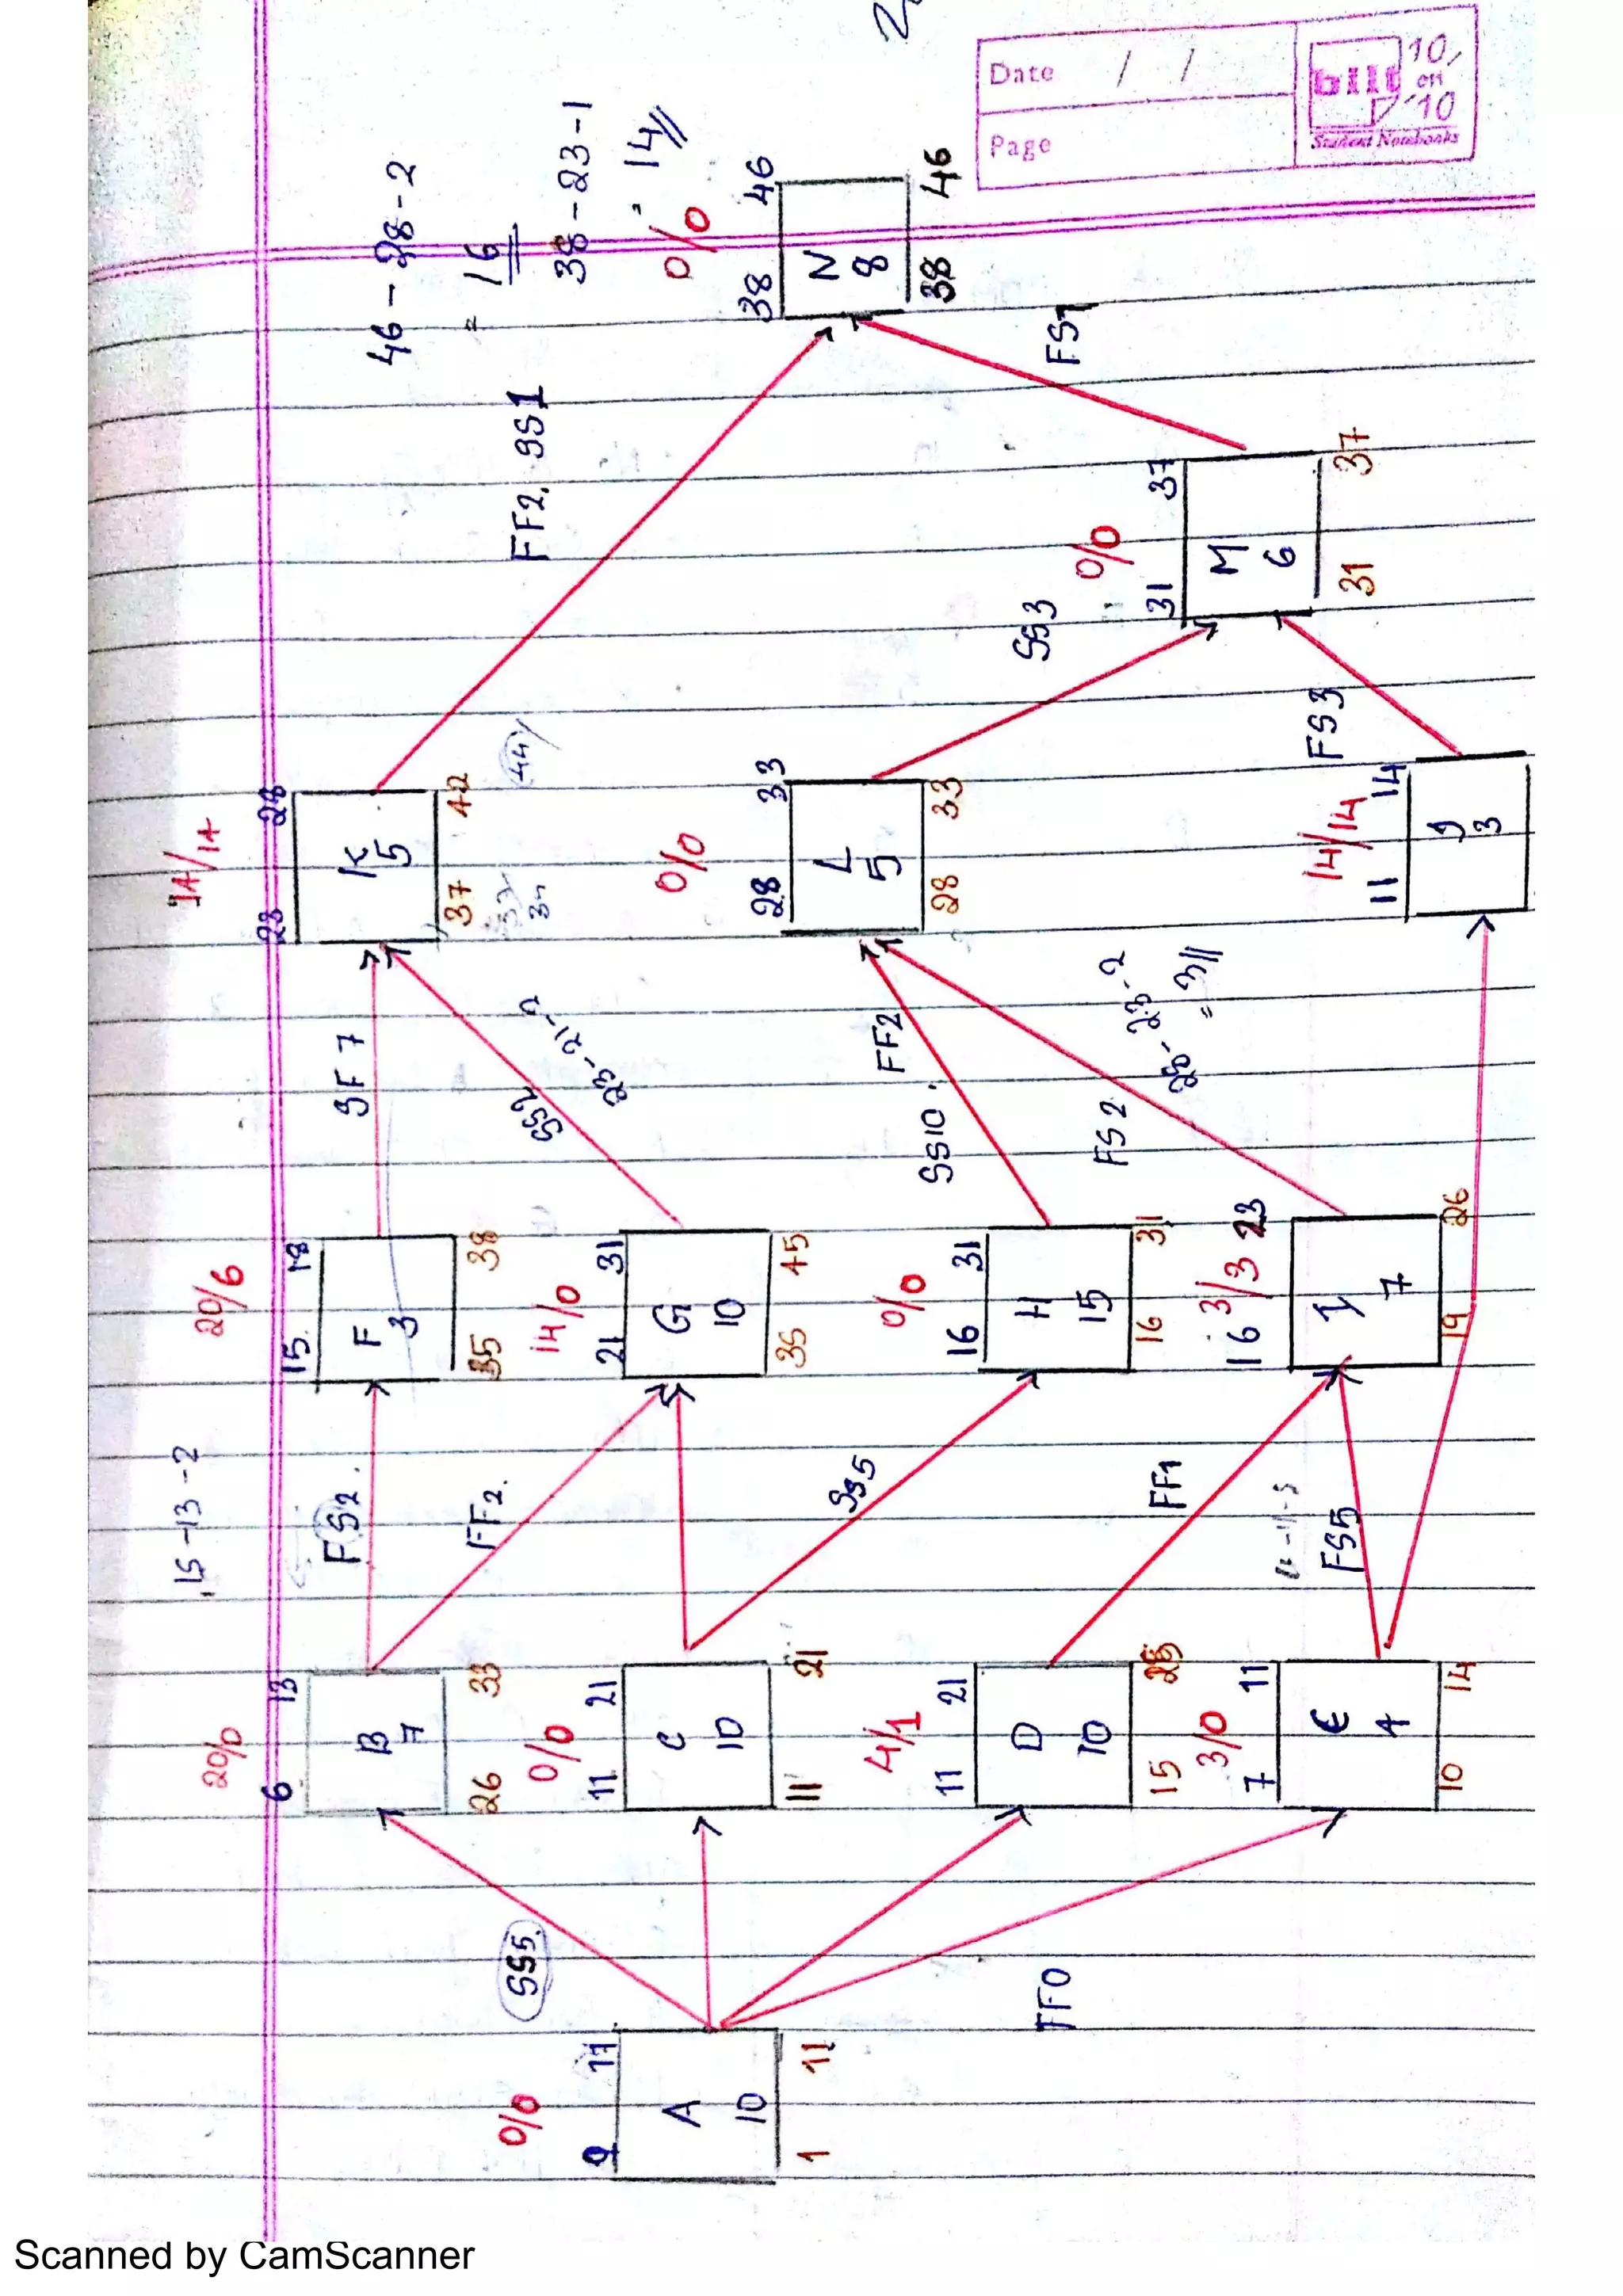 Date / /
Page
bilt
10
on
10
Student Notebooks
46-28-2
= 16
38-23-1
= 14//
15-13-2
A
10
0/0
11
1 11
SS5.
FF0
B
7
20/0
6 13
26 33
C
10
0/0
11 21
11 21
D
10
4/1
11 21
15 25
E
4
3/0
7 11
10 14
FS2.
FF2.
SS5
FF1
FS5
F
3
20/6
15 18
35 38
G
10
14/0
21 31
35 45
H
15
0/0
16 31
16 31
I
7
3/3
16 23
19 26
SF7
SS2
23-21-2
SS10. FF2
FS2
28-23-2
= 3//
K
5
14/14
23 28
37 42
44
L
5
0/0
28 33
28 33
J
3
14/14
11 14
FF2. SS1
SS3
FS3
M
6
0/0
31 37
31 37
FS1
N
8
0/0
38 46
38 46
Scanned by CamScanner